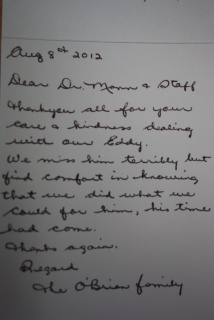 Aug 8th 2012
Dear Dr. Mann & Staff
Thankyou all for your
care & kindness dealing
with our Eddy.
We miss him terribly but
find comfort in knowing
that we did what we
could for him, his time
had come.
Thanks again.
Regard
The O'Brien family